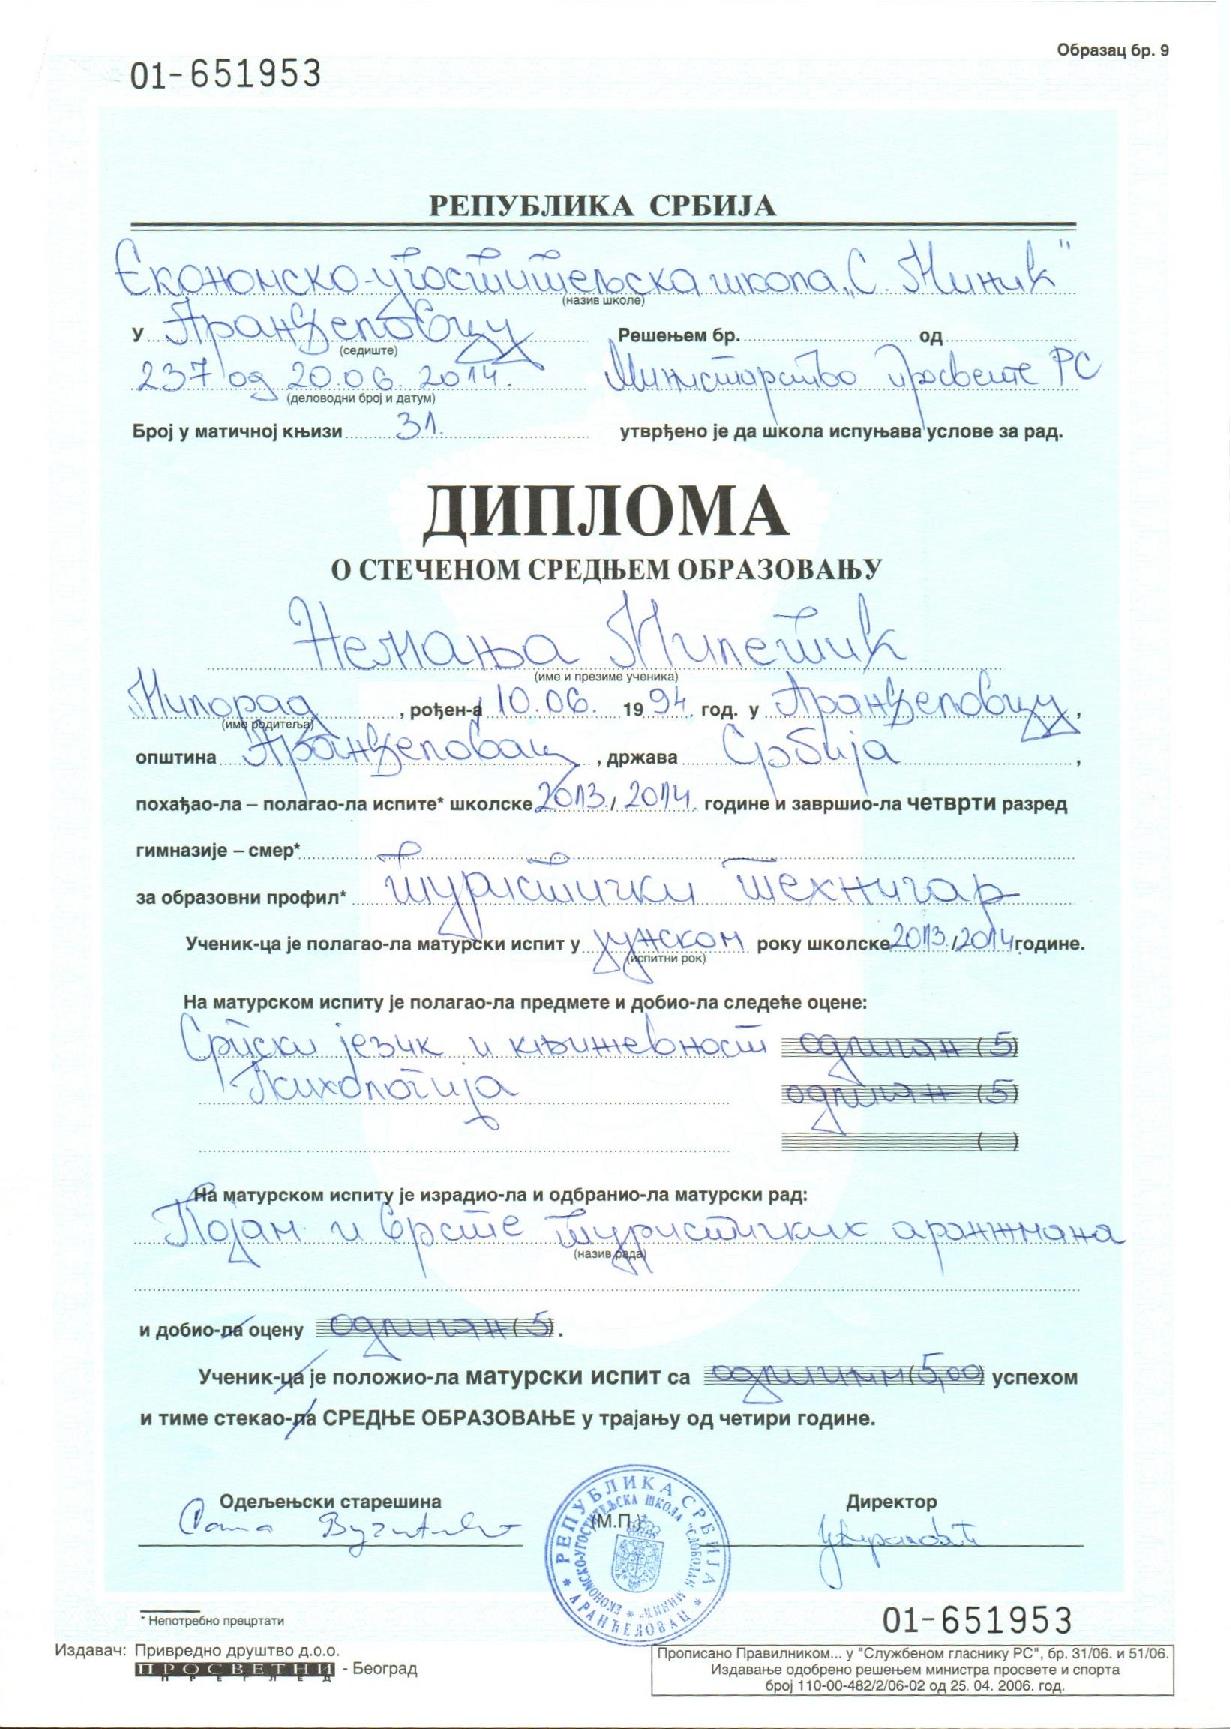 Образац бр. 9
01-651953
РЕПУБЛИКА СРБИЈА
Економско-угоститељска школа „С. Минић"
(назив школе)
У Аранђеловцу Решењем бр. од
(седиште)
237 од 20.06. 2014. Министарство просвете РС
(деловодни број и датум)
Број у матичној књизи 31. утврђено је да школа испуњава услове за рад.
ДИПЛОМА
О СТЕЧЕНОМ СРЕДЊЕМ ОБРАЗОВАЊУ
Немања Милетић
(име и презиме ученика)
Милорад, рођен-а 10.06. 1994. год. у Аранђеловцу,
(име родитеља)
општина Аранђеловац, држава Србија,
похађао-ла – полагао-ла испите* школске 2013./2014. године и завршио-ла четврти разред
гимназије – смер*
за образовни профил* туристички техничар
Ученик-ца је полагао-ла матурски испит у јунском року школске 2013./2014. године.
(испитни рок)
На матурском испиту је полагао-ла предмете и добио-ла следеће оцене:
Српски језик и књижевност одличан (5)
Психологија одличан (5)
( )
На матурском испиту је израдио-ла и одбранио-ла матурски рад:
Појам и врсте туристичких аранжмана
(назив рада)
и добио-ла оцену одличан (5).
Ученик-ца је положио-ла матурски испит са одличним (5,00) успехом
и тиме стекао-ла СРЕДЊЕ ОБРАЗОВАЊЕ у трајању од четири године.
Одељенски старешина (М.П.) Директор
РЕПУБЛИКА СРБИЈА
ЕКОНОМСКО-УГОСТИТЕЉСКА ШКОЛА "СЛОБОДАН МИНИЋ"
АРАНЂЕЛОВАЦ
* Непотребно прецртати
01-651953
Издавач: Привредно друштво д.о.о.
ПРОСВЕТНИ ПРЕГЛЕД - Београд
Прописано Правилником... у "Службеном гласнику РС", бр. 31/06. и 51/06.
Издавање одобрено решењем министра просвете и спорта
број 110-00-482/2/06-02 од 25. 04. 2006. год.